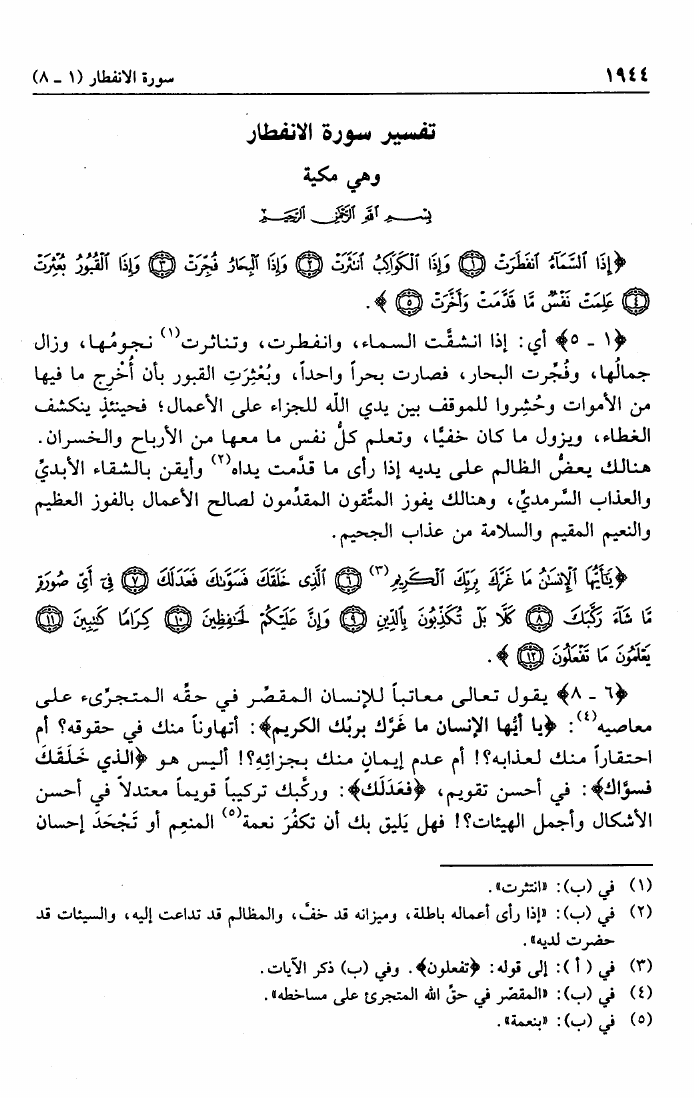 ١٩٤٤ سورة الانفطار (١ ـ ٨)
تفسير سورة الانفطار
وهي مكية
بِسْمِ اللَّهِ الرَّحْمَٰنِ الرَّحِيمِ
﴿إِذَا السَّمَاءُ انفَطَرَتْ ﴿١﴾ وَإِذَا الْكَوَاكِبُ انتَثَرَتْ ﴿٢﴾ وَإِذَا الْبِحَارُ فُجِّرَتْ ﴿٣﴾ وَإِذَا الْقُبُورُ بُعْثِرَتْ
﴿٤﴾ عَلِمَتْ نَفْسٌ مَّا قَدَّمَتْ وَأَخَّرَتْ ﴿٥﴾﴾.
﴿١ ـ ٥﴾ أي: إذا انشقَّت السماء، وانفطرت، وتناثرت(١) نجومُها، وزال
جمالُها، وفُجِّرت البحار، فصارت بحراً واحداً، وبُعْثِرَتِ القبور بأن أُخْرِج ما فيها
من الأموات وحُشِروا للموقف بين يدي الله للجزاء على الأعمال؛ فحينئذٍ ينكشف
الغطاء، ويزول ما كان خفيًّا، وتعلم كلُّ نفس ما معها من الأرباح والخسران.
هنالك يعضُّ الظالم على يديه إذا رأى ما قدَّمت يداه(٢) وأيقن بالشقاء الأبديِّ
والعذاب السَّرمديِّ، وهنالك يفوز المتَّقون المقدِّمون لصالح الأعمال بالفوز العظيم
والنعيم المقيم والسلامة من عذاب الجحيم.
﴿يَٰأَيُّهَا الْإِنسَٰنُ مَا غَرَّكَ بِرَبِّكَ الْكَرِيمِ(٣) ﴿٦﴾ الَّذِى خَلَقَكَ فَسَوَّىٰكَ فَعَدَلَكَ ﴿٧﴾ فِىٓ أَىِّ صُورَةٍ
مَّا شَآءَ رَكَّبَكَ ﴿٨﴾ كَلَّا بَلْ تُكَذِّبُونَ بِالدِّينِ ﴿٩﴾ وَإِنَّ عَلَيْكُمْ لَحَٰفِظِينَ ﴿١٠﴾ كِرَامًا كَٰتِبِينَ ﴿١١﴾
يَعْلَمُونَ مَا تَفْعَلُونَ ﴿١٢﴾﴾.
﴿٦ ـ ٨﴾ يقول تعالى معاتباً للإنسان المقصِّر في حقِّه المتجرِّىء على
معاصيه(٤): ﴿يا أيُّها الإنسان ما غَرَّك بربِّك الكريم﴾: أتهاوناً منك في حقوقه؟ أم
احتقاراً منك لعذابه؟! أم عدم إيمانٍ منك بجزائِهِ؟! أليس هو ﴿الذي خَلَقَكَ
فسوَّاك﴾: في أحسن تقويم، ﴿فعَدَلَك﴾: وركَّبك تركيباً قويماً معتدلاً في أحسن
الأشكال وأجمل الهيئات؟! فهل يَليق بك أن تكفُرَ نعمة(٥) المنعِم أو تَجْحَدَ إحسان
(١) في (ب): «انتثرت».
(٢) في (ب): «إذا رأى أعماله باطلة، وميزانه قد خفَّ، والمظالم قد تداعت إليه، والسيئات قد
حضرت لديه».
(٣) في (أ): إلى قوله: ﴿تفعلون﴾. وفي (ب) ذكر الآيات.
(٤) في (ب): «المقصّر في حقِّ الله المتجرئ على مساخطه».
(٥) في (ب): «بنعمة».